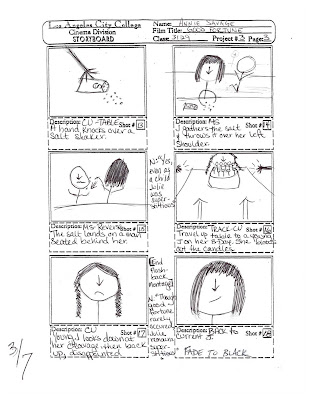 Los Angeles City College
Cinema Division
STORYBOARD
Name: ANNIE SAVAGE
Film Title: GOOD FORTUNE
Class: 3129 Project #3 Page: 3
Description: CU - TABLE Shot # 13
A hand knocks over a
salt shaker.
Description: MS Shot # 14
J gathers the salt
& throws it over her left
shoulder.
Description: MS Reverse Shot # 15
The salt lands on a man
seated behind her
N: "Yes,
even as
a child
Julie
was
super-
stitious
Description: TRACK-CU Shot # 16
Travel up table to a young
J on her B-Day. She
at the candles.
Description: CU Shot # 17
Young J looks down at
her cleavage, then back
up, disappointed
End
flash-
back
montage
N: "Though
good
fortune
rarely
occured
Julie
remains
super-
stitious
Description: BACK to Shot #
current J.
FADE TO BLACK
3/7